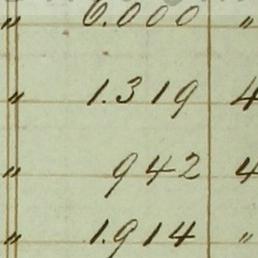 " 6.000 "
" 1.319 4
" 942 4
" 1.914 "